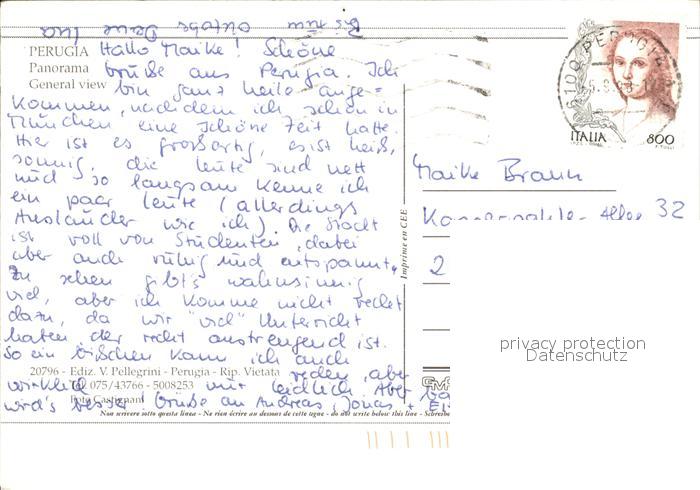 Bis zum Oktober Deine
PERUGIA Hallo Maike! Schöne
Panorama Grüße aus Perugia. Ich
General view bin ganz heile ange=
kommen, nachdem ich schon in
München eine schöne Zeit hatte.
Hier ist es großartig, es ist heiß,
sonnig, die Leute sind nett
und so langsam kenne ich
ein paar Leute (allerdings
Ausländer wie ich). Die Stadt
ist voll von Studenten, dabei
aber auch ruhig und entspannt.
Zu sehen gibt's wahnsinnig
viel, aber ich komme nicht recht
dazu, da wir "viel" Unterricht
haben, der recht anstrengend ist.
So ein bißchen kann ich auch
reden, aber
20796 - Ediz. V. Pellegrini - Perugia - Rip. Vietata
wirklich nur leidlich. Aber
Tel 075/43766 - 5008253
Foto Castignani
wird's besser. Grüße an Andreas, Jonas +
Non scrivere sotto questa linea - Ne rien écrire au dessous de cette ligne - do not write below this line -
Imprimé en CEE
06100 PERUGIA
ITALIA 800
Maike Braun
Allee 32
2
privacy protection
Datenschutz